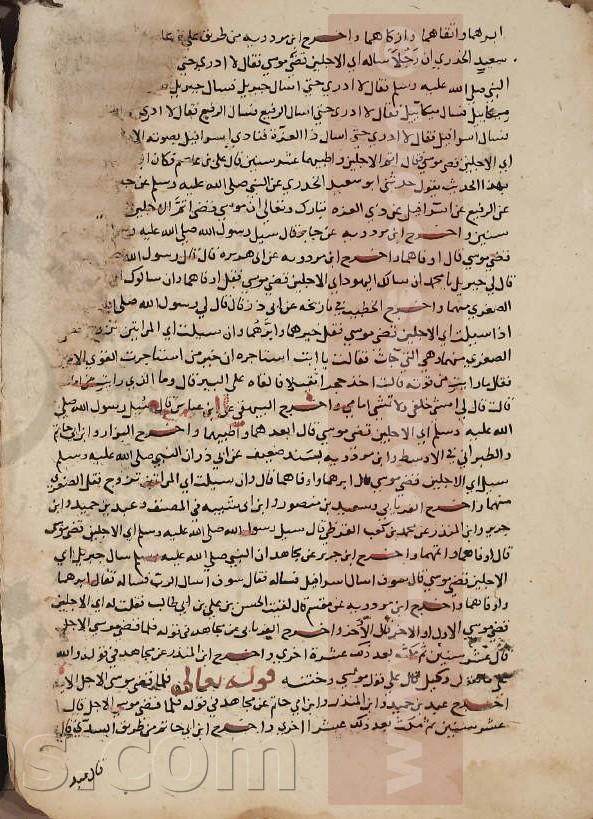 ابرهما واتقاهما وازكاهما واخرج ابن مردويه من طريق علي بن عاصم
سعيد الخدري ان رجلا ساله اي الاجلين قضى موسى فقال لا ادري حتى
النبي صلى الله عليه وسلم فقال لا ادري حتى اسال جبريل فسال جبريل
ميكائيل فسال ميكائيل فقال لا ادري حتى اسال الرفيع فسال الرفيع فقال لا ادري
فسال اسرافيل فقال لا ادري حتى اسال ذا العزة فنادى اسرافيل بصوته
اي الاجلين قضى موسى قال اتم الاجلين واطيبهما عشر سنين قال علي بن عاصم فكان
بهذا الحديث يقول حدثني ابو سعيد الخدري عن النبي صلى الله عليه وسلم عن
عن الرفيع عن اسرافيل عن ذي العزة تبارك وتعالى ان موسى قضى اتم الاجلين
سنين واخرج ابن مردويه عن جابر قال سيل رسول الله صلى الله عليه
قضى موسى قال اوفاهما واخرج ابن مردويه عن ابي هريرة قال قال رسول الله
قال لي جبريل يا محمد ان سالك اليهود اي الاجلين قضى موسى فقل اوفاهما وان سالوك
الصغرى منهما واخرج الخطيب في تاريخه عن ابي ذر قال قال لي رسول الله صلى
اذا سيلت اي الاجلين قضى موسى فقل خيرهما وابرهما وان سيلت اي المراتين
الصغرى منهما وهي التي جات فقالت يا ابت استاجره ان خير من استاجرت القوي
فقال ما رايت من قوته قالت اخذ حجرا ثقيلا فالقاه على البير قال وما الذي رايت من
قالت قال لي امشي خلفي ولا تمشي امامي واخرج البيهقي عن ابن عباس قال سيل رسول الله صلى
الله عليه وسلم اي الاجلين قضى موسى قال ابعدهما واطيبهما واخرج البزار وابن ابي حاتم
والطبراني في الاوسط وابن مردويه بسند ضعيف عن ابي ذر ان النبي صلى الله عليه وسلم
سيل اي الاجلين قضى موسى قال ابرهما واوفاهما قال وان سيلت اي المراتين تزوج فقل الصغرى
منهما واخرج الفريابي وسعيد بن منصور وابن ابي شيبة في المصنف وعبد بن حميد وابن
جرير وابن المنذر عن محمد بن كعب القرظي قال سيل رسول الله صلى الله عليه وسلم اي الاجلين قضى موسى
قال اوفاهما واتمهما واخرج ابن جرير عن مجاهد ان النبي صلى الله عليه وسلم سال جبريل اي
الاجلين قضى موسى قال سوف اسال اسرافيل فساله فقال سوف اسال الرب فساله فقال ابرهما
واوفاهما واخرج ابن مردويه عن مقسم قال لقيت الحسن بن علي بن ابي طالب فقلت له اي الاجلين
قضى موسى الاول او الاخر قال الاخر واخرج الفريابي عن مجاهد في قوله فلما قضى موسى الاجل
قال عشر سنين ثم مكث بعد ذلك عشرة اخرى واخرج ابن المنذر عن مجاهد في قوله والله
على ما نقول وكيل قال على قول موسى وختنه قوله تعالى فلما قضى موسى الاجل الايه
اخرج عبد بن حميد وابن المنذر وابن ابي حاتم عن مجاهد في قوله فلما قضى موسى الاجل قال
عشر سنين ثم مكث بعد ذلك عشرا اخرى واخرج ابن ابي حاتم من طريق السدي قال
قال عبد